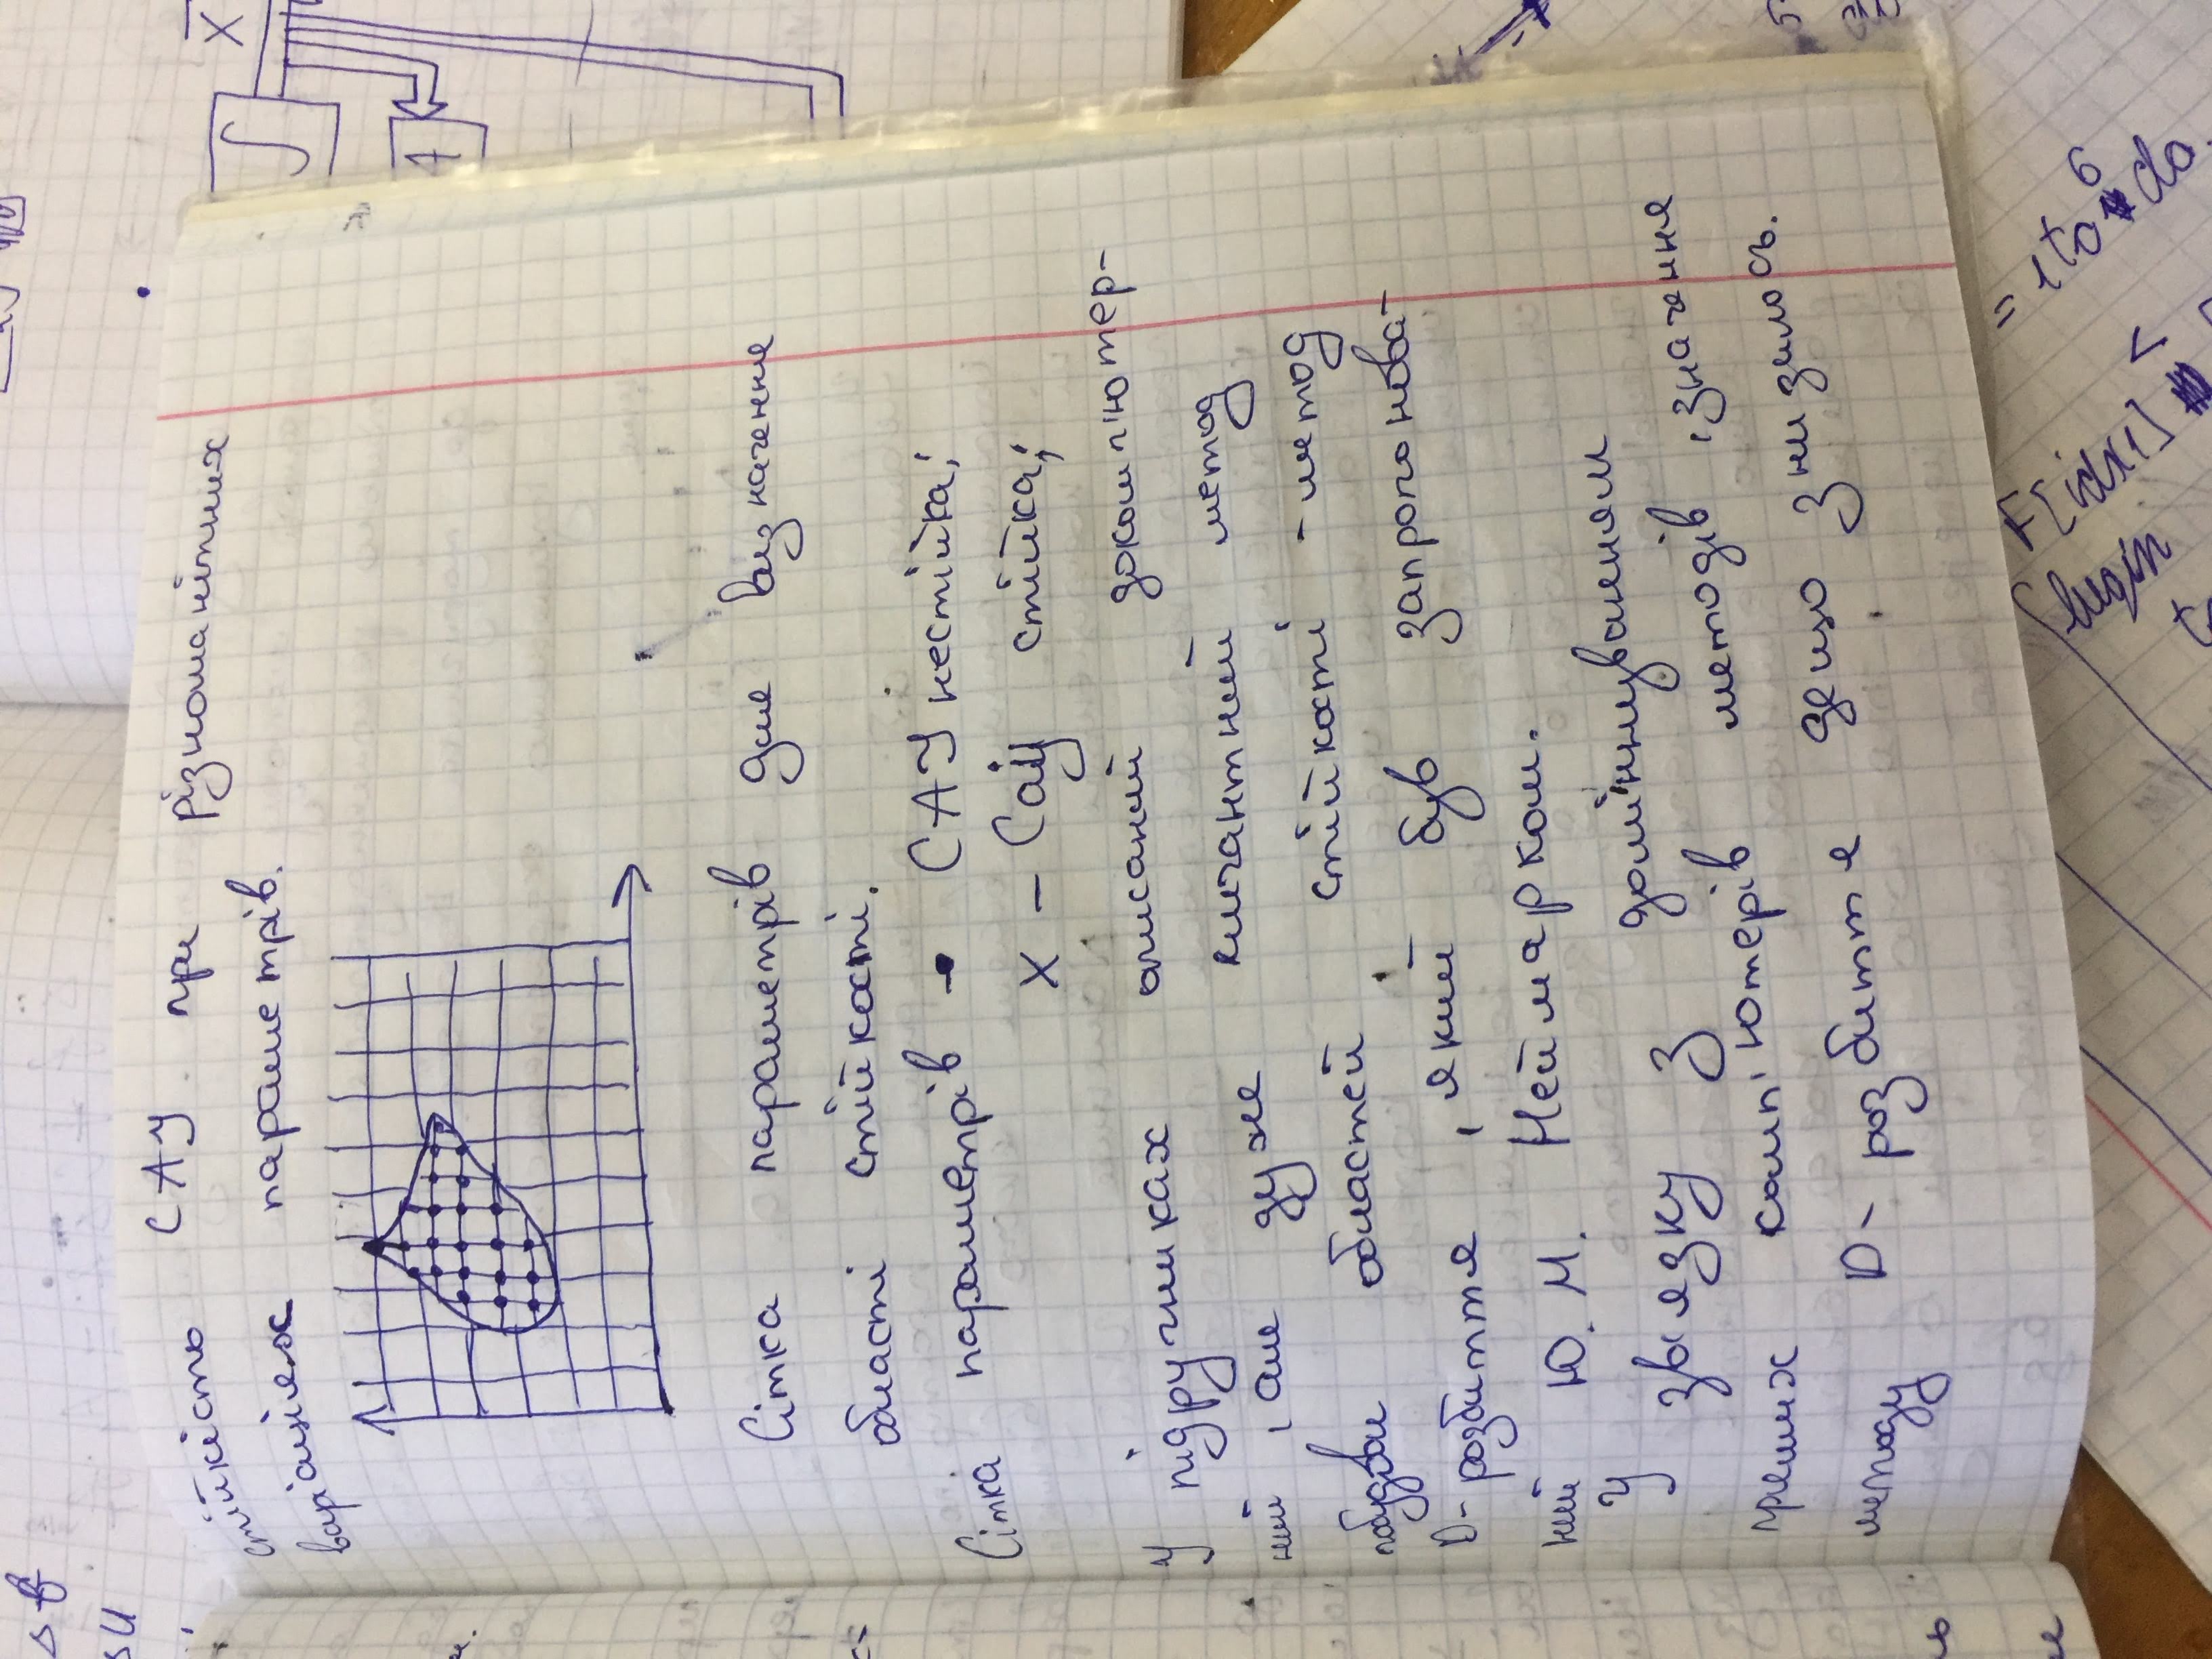 стійкість САУ при різноманітних
варіаціях параметрів.
Сітка параметрів для визначення
області стійкості.
Сітка параметрів • САУ нестійка;
х – Сау стійка;
У підручниках описаний докомп'ютер-
ний, але дуже елигантний метод
побудови областей стійкості - метод
D-розбиття, який був запропонова-
ний Ю. М. Неймарком.
У зв'язку з доміннуванням
прямих комп'ютерів методів, значення
методу D-розбиття дещо знизилось.
Δ
U
X
F[idx1] <
begin
= 1 to 6 do